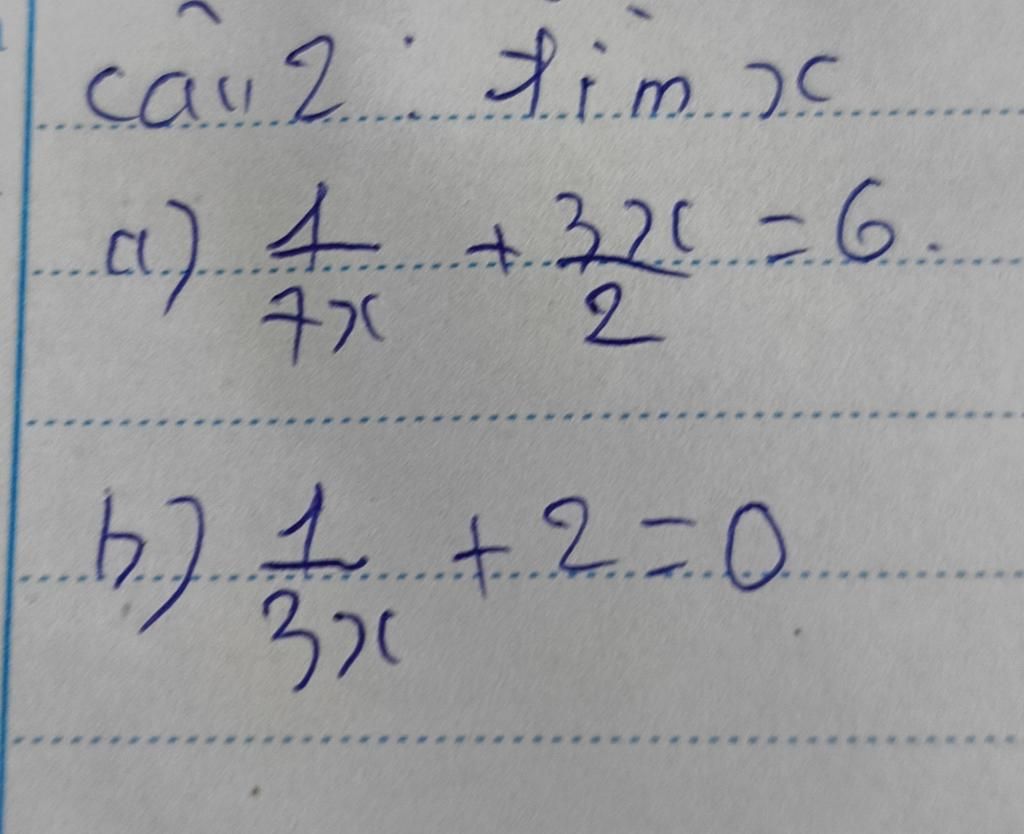 câu 2: tìm x
a) 1/7x + 3x/2 = 6.
b) 1/3x + 2 = 0